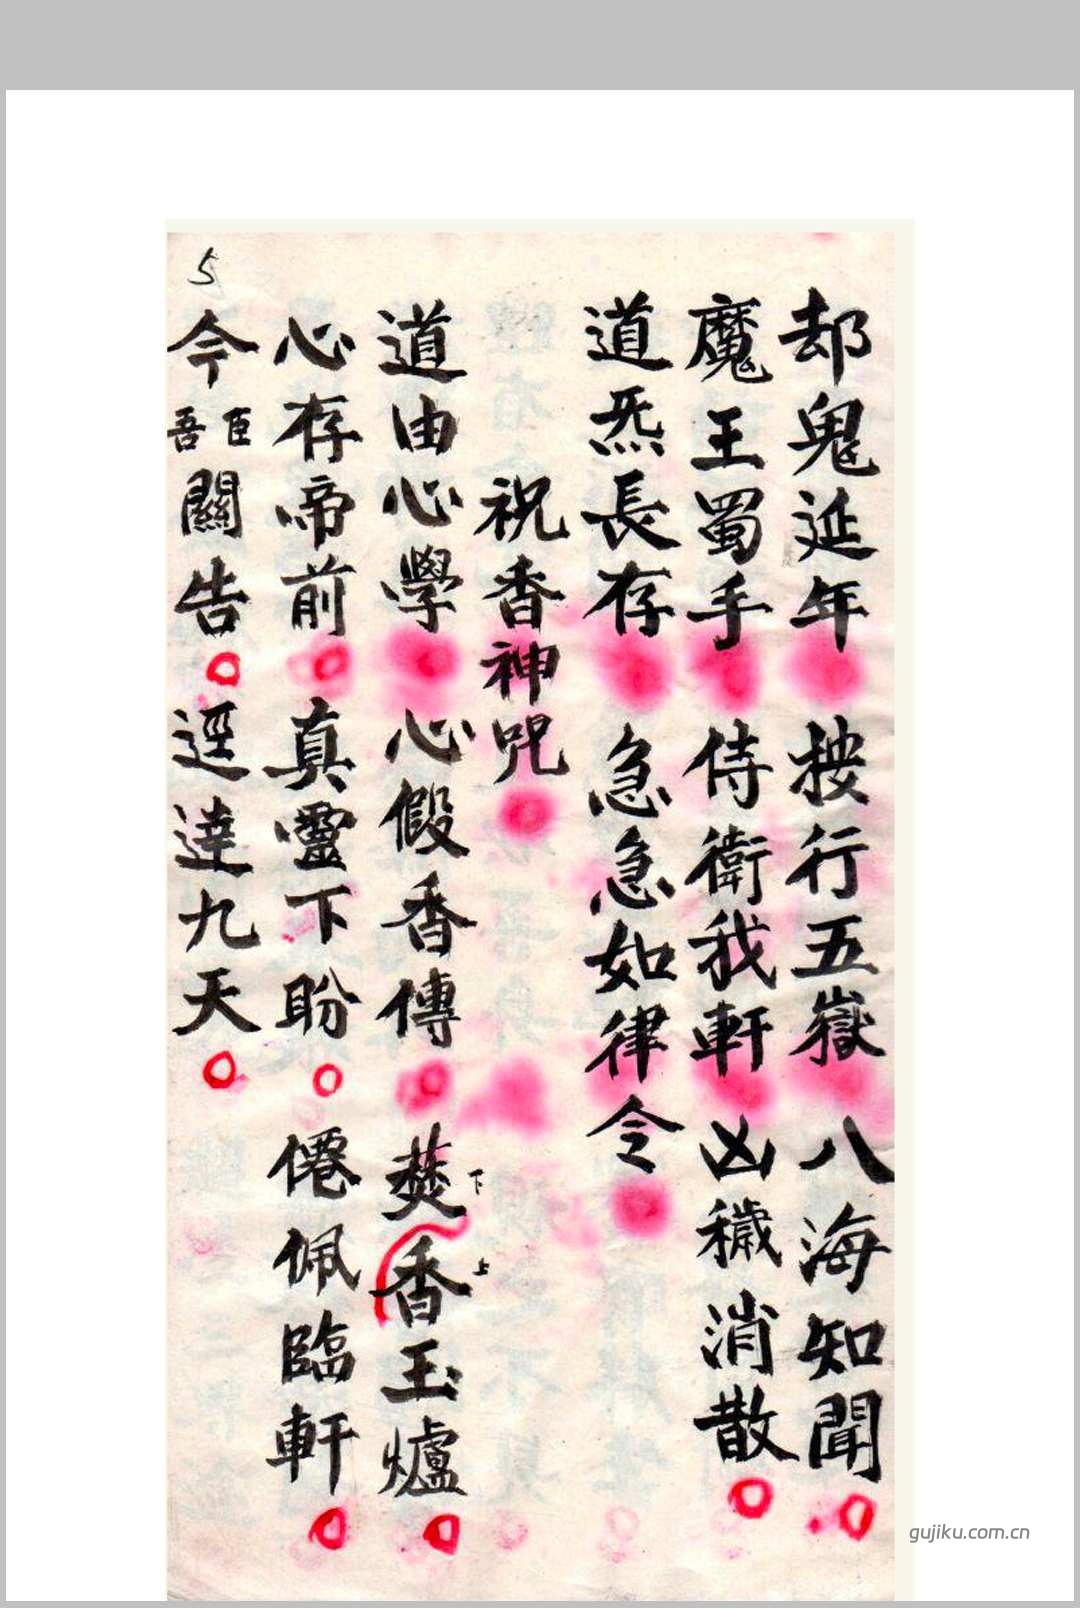 却鬼延年 按行五嶽 八海知聞
魔王蜀手 侍衛我軒 凶穢消散
道炁長存 急急如律令
祝香神咒
道由心學 心假香傳 焚下香上玉爐
心存帝前 真靈下盼 僊佩臨軒
今臣吾關告 逕達九天
5
gujiku.com.cn